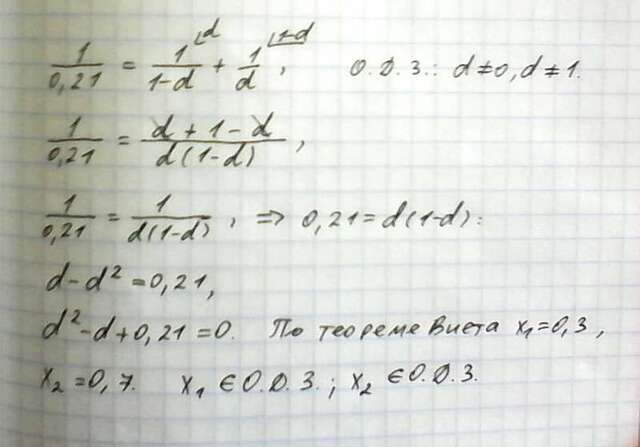 1/0,21 = 1/(1-d) ⌊d + 1/d ⌊1-d, О.Д.З.: d≠0, d≠1.
1/0,21 = (d+1-d)/(d(1-d)),
1/0,21 = 1/(d(1-d)), => 0,21=d(1-d):
d-d²=0,21,
d²-d+0,21=0. По теореме Виета x₁=0,3,
x₂=0,7. x₁ ∈ О.Д.З.; x₂ ∈ О.Д.З.